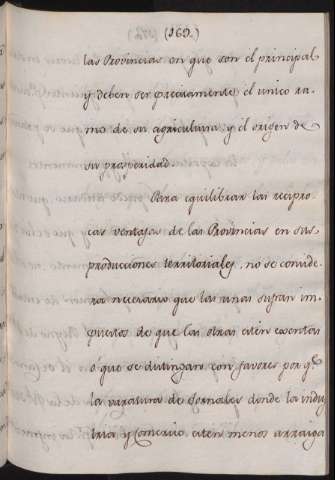 (169.)
las Provincias en que son el principal
y deben ser precisamente el unico ra-
mo de su agricultura y el origen de
su prosperidad.
Para equilibrar las recipro-
cas ventajas de las Provincias en sus
producciones territoriales, no se conside-
ra necesario que las unas sufran im-
puestos de que las otras estén esentas
ó que se distingan con favores por qe
la varatura de Jornales donde la indus
tria y Comercio estén menos arraiga